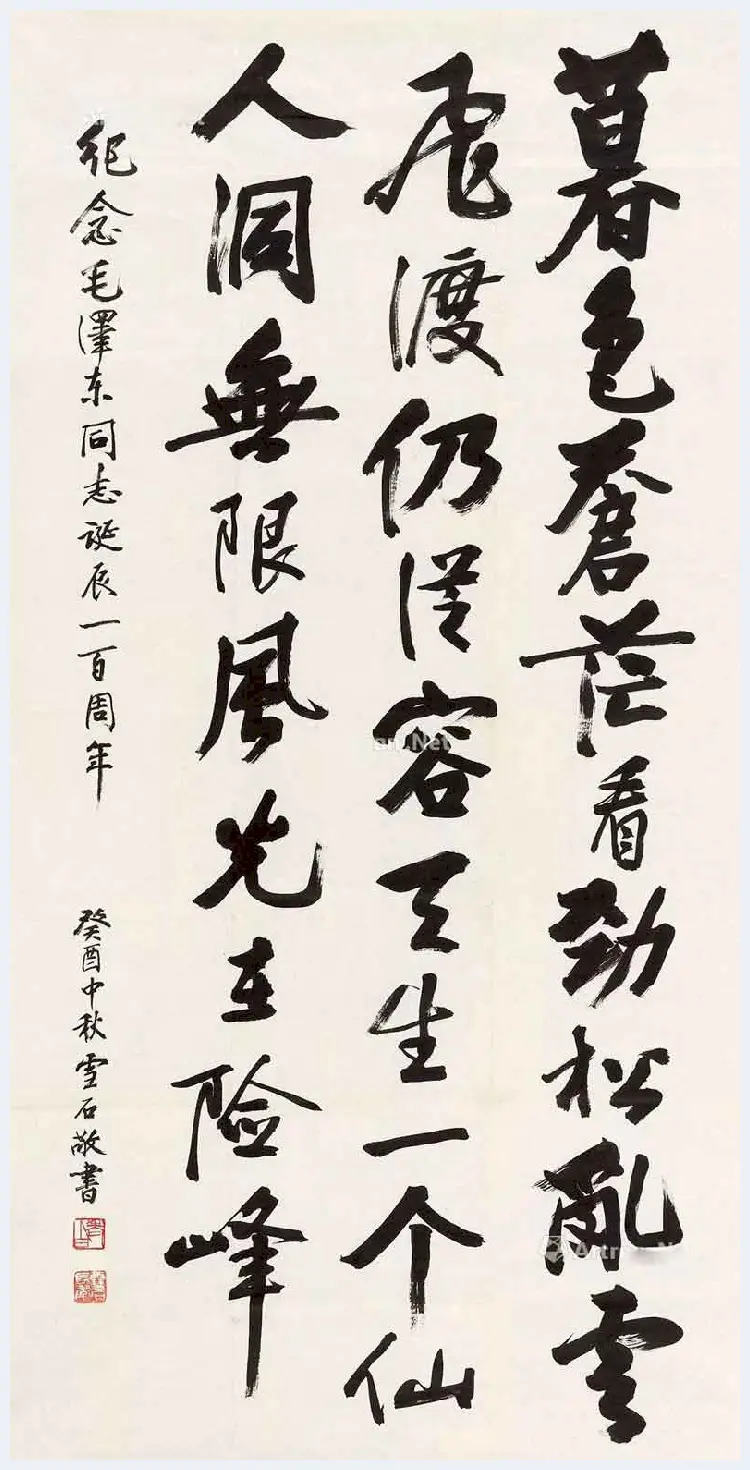 暮色蒼茫看劲松亂雲
飛渡仍従容天生一个仙
人洞無限風光在险峰
纪念毛澤东同志誕辰一百周年
癸酉中秋雪石敬書